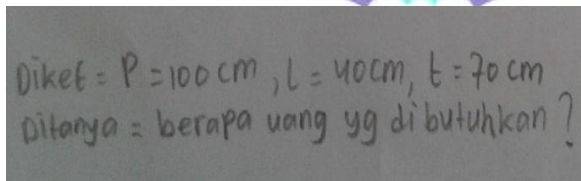 Diket = P = 100 cm, l = 40 cm, t = 70 cm
Ditanya = berapa uang yg dibutuhkan?